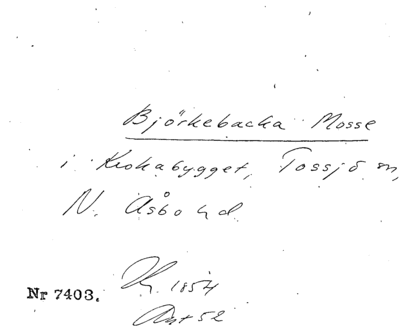 Björkebacka Mosse
i Krokabygget, Tossjö sn,
N. Åsbo hd
Nr 7403.
1854
52